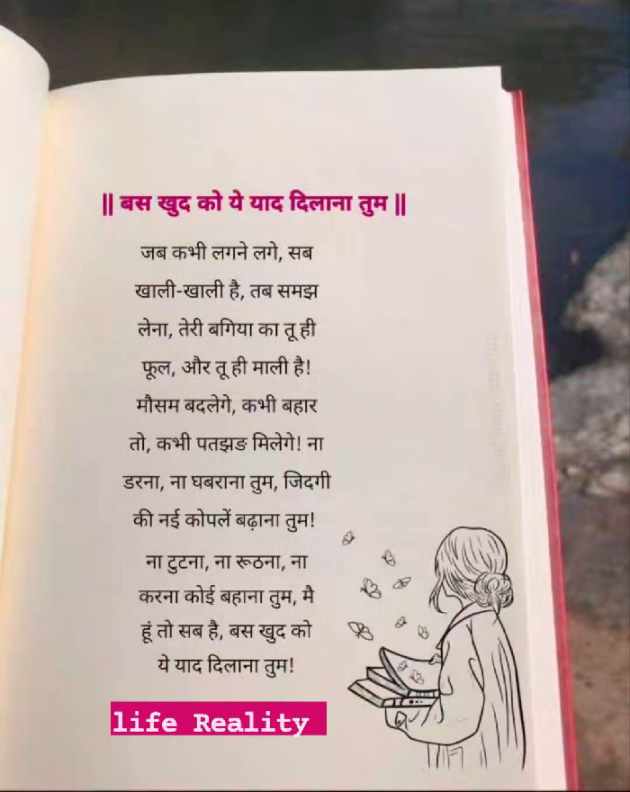 || बस खुद को ये याद दिलाना तुम ||
जब कभी लगने लगे, सब
खाली-खाली है, तब समझ
लेना, तेरी बगिया का तू ही
फूल, और तू ही माली है!
मौसम बदलेगे, कभी बहार
तो, कभी पतझङ मिलेगे! ना
डरना, ना घबराना तुम, जिदगी
की नई कोपलें बढ़ाना तुम!
ना टुटना, ना रूठना, ना
करना कोई बहाना तुम, मै
हूं तो सब है, बस खुद को
ये याद दिलाना तुम!
life Reality